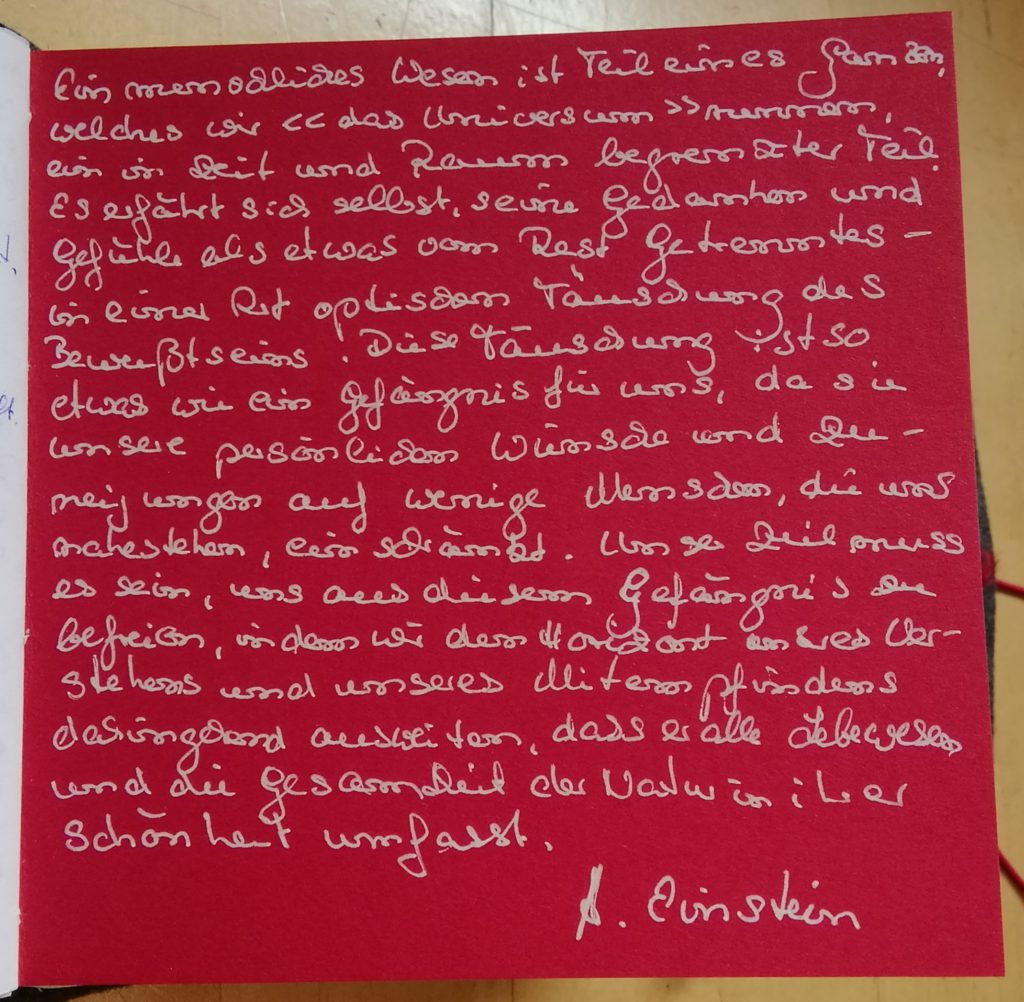 Ein menschliches Wesen ist Teil eines Ganzen,
welches wir << das Universum >> nennen,
ein in Zeit und Raum begrenzter Teil.
Es erfährt sich selbst, seine Gedanken und
Gefühle als etwas vom Rest Getrenntes –
in einer Art optischen Täuschung des
Bewußtseins. Diese Täuschung ist so
etwas wie ein Gefängnis für uns, da sie
unsere persönlichen Wünsche und Zu-
neigungen auf wenige Menschen, die uns
nahestehen, einschränkt. Unser Ziel muss
es sein, uns aus diesem Gefängnis zu
befreien, indem wir den Horizont unseres Ver-
stehens und unseres Mitempfindens
dahingehend ausweiten, dass er alle Lebewesen
und die Gesamtheit der Natur in ihrer
Schönheit umfasst.
A. Einstein